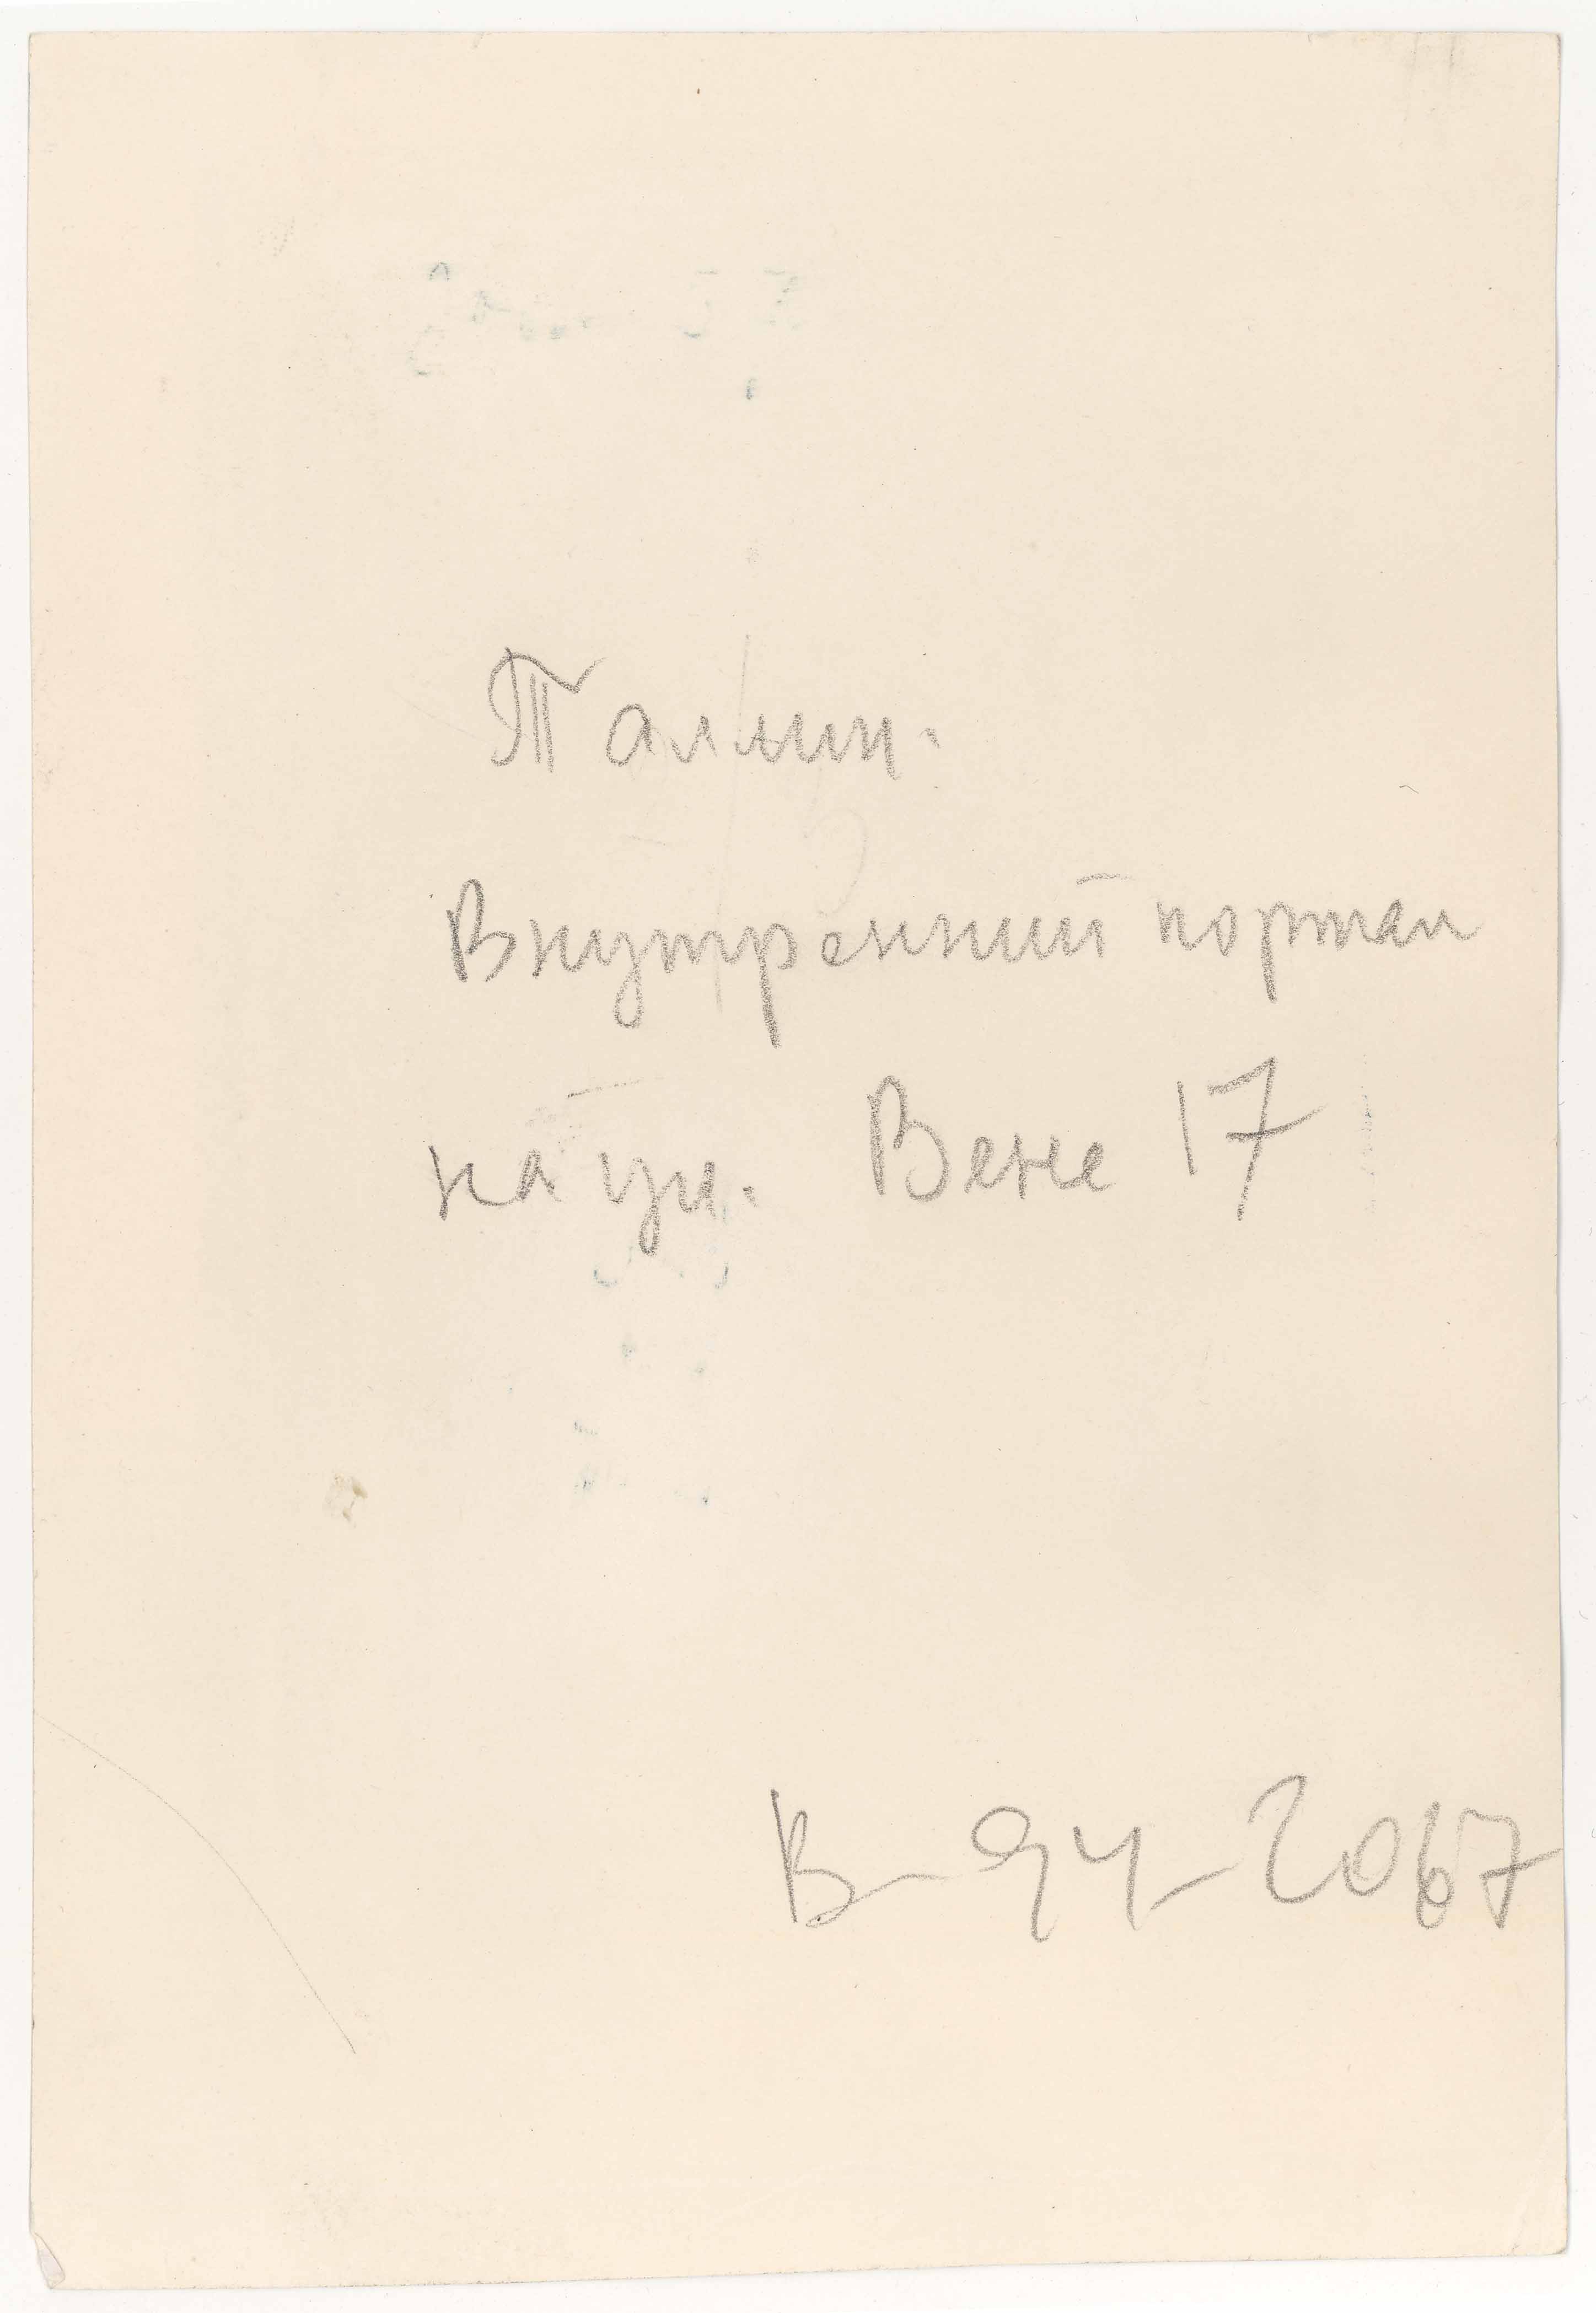 Таллин.
Внутренний портал
на ул. Вене 17
В-94-2067